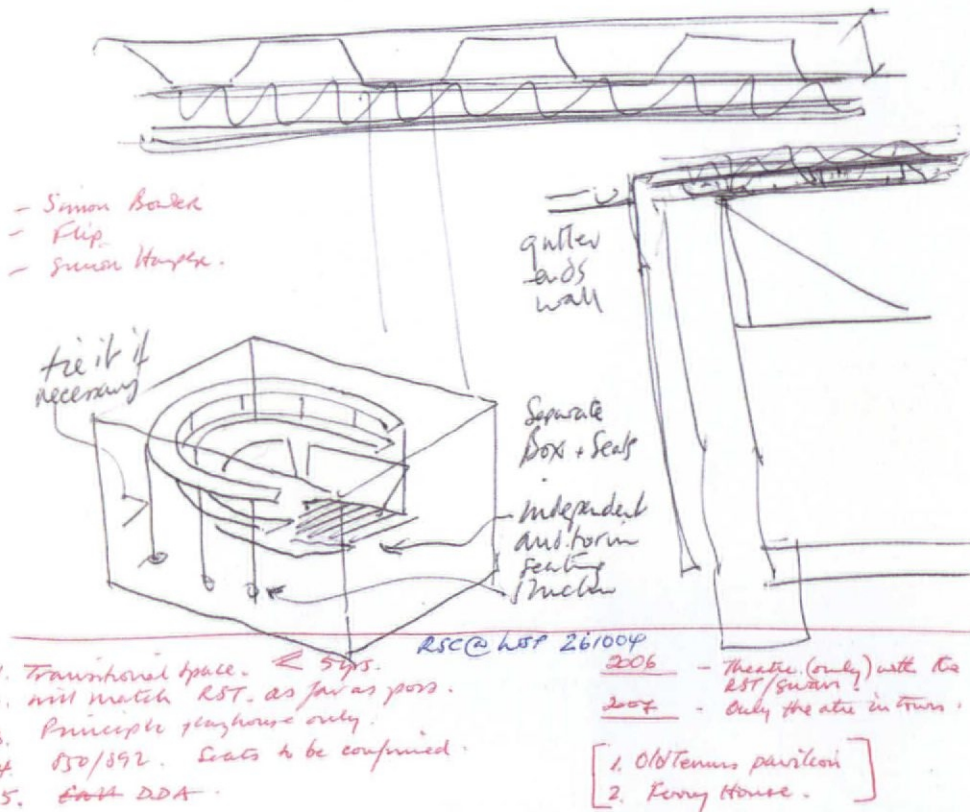 - Simon Bowler
- Flip
- Simon Harper.
gutter
ends
wall
tie it if
necessary
Separate
Box + Seats
independent
auditorium
seating
structure
RSC @ WSP 261004
1. Transitional space. < 5yrs.
2. will match RST. as far as poss.
3. Principle playhouse only.
4. 850/892. Seats to be confirmed.
5. DDA
2006 - Theatre (only) with the
RST/Swan.
2007 - Only theatre in town.
1. Old Tennis pavilion
2. Ferry House.